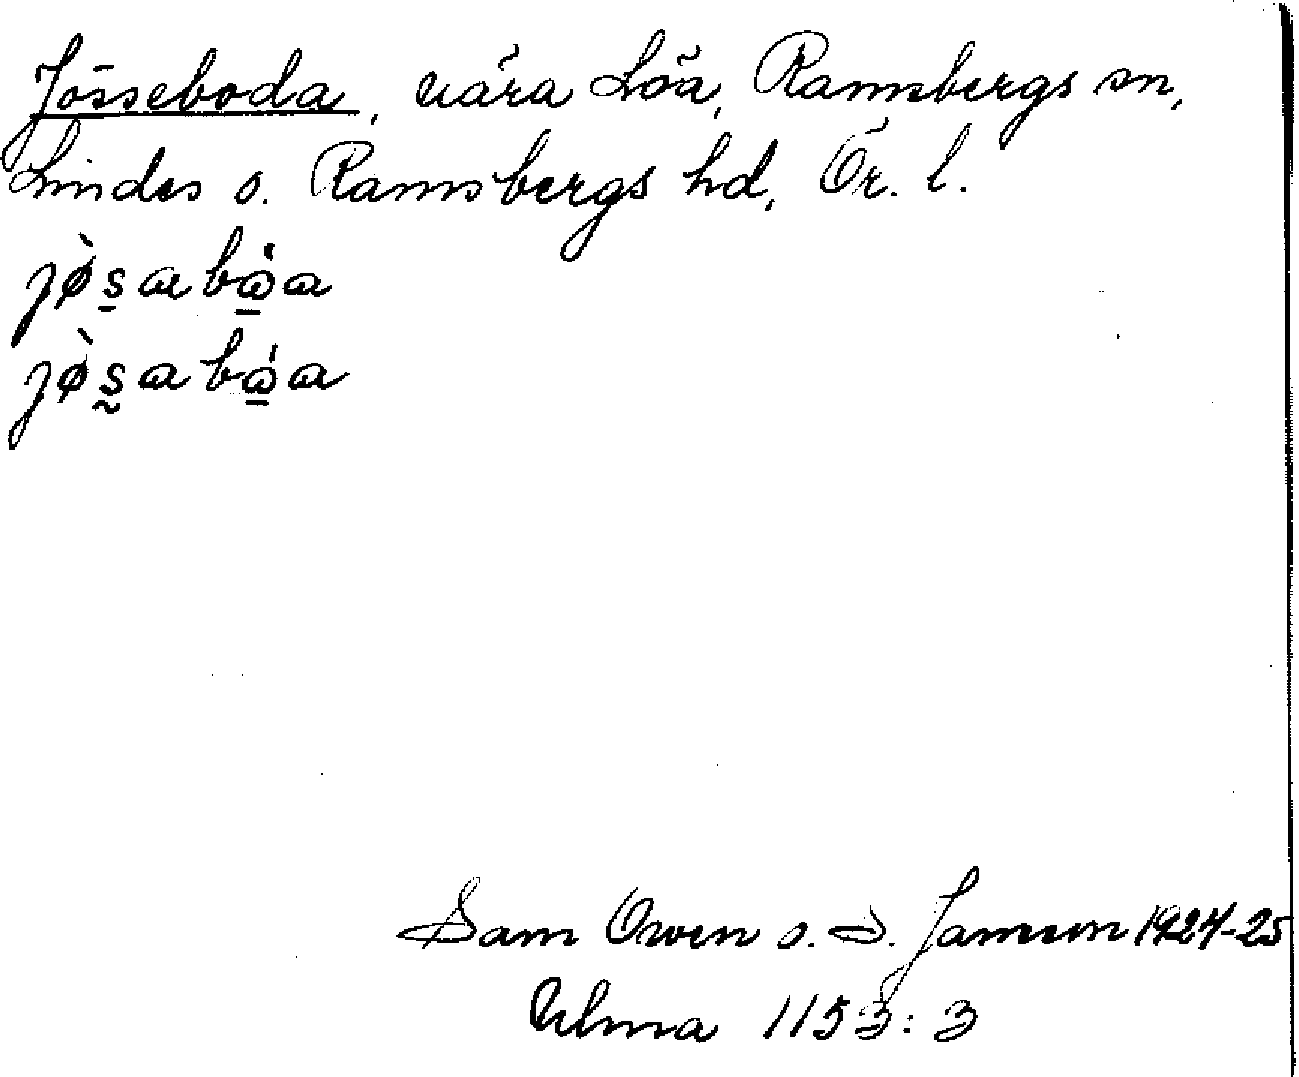 Jösseboda, nära Löa, Ramsbergs sn,
Lindes o. Ramsbergs hd, Ör. l.
jø̀s̱abὼ̱a
jø̀s̰abώ̱a
Sam Owen o. S. Janson 1924-25
Ulma 1153:3